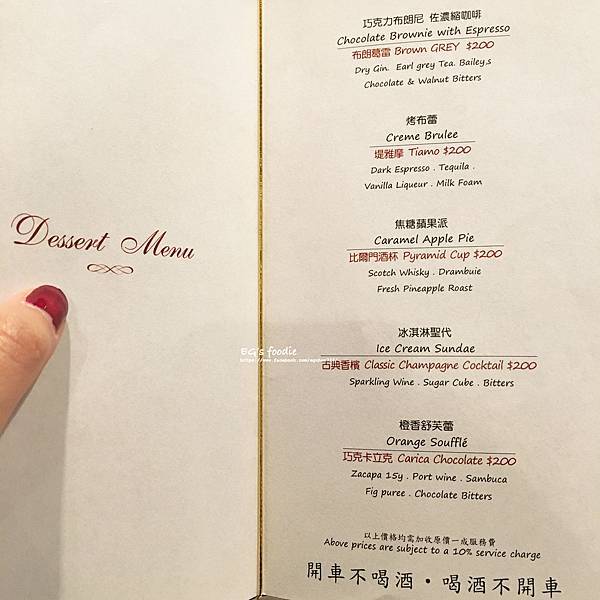 Dessert Menu
EG's foodie
巧克力布朗尼 佐濃縮咖啡
Chocolate Brownie with Espresso
布朗葛雷 Brown GREY $200
Dry Gin. Earl grey Tea. Bailey,s
Chocolate & Walnut Bitters
烤布蕾
Creme Brulee
堤雅摩 Tiamo $200
Dark Espresso . Tequila .
Vanilla Liqueur . Milk Foam
焦糖蘋果派
Caramel Apple Pie
比爾門酒杯 Pyramid Cup $200
Scotch Whisky . Drambuie
Fresh Pineapple Roast
冰淇淋聖代
Ice Cream Sundae
古典香檳 Classic Champagne Cocktail $200
Sparkling Wine . Sugar Cube . Bitters
橙香舒芙蕾
Orange Soufflé
巧克卡立克 Carica Chocolate $200
Zacapa 15y . Port wine . Sambuca
Fig puree . Chocolate Bitters
以上價格均需加收原價一成服務費
Above prices are subject to a 10% service charge
開車不喝酒・喝酒不開車